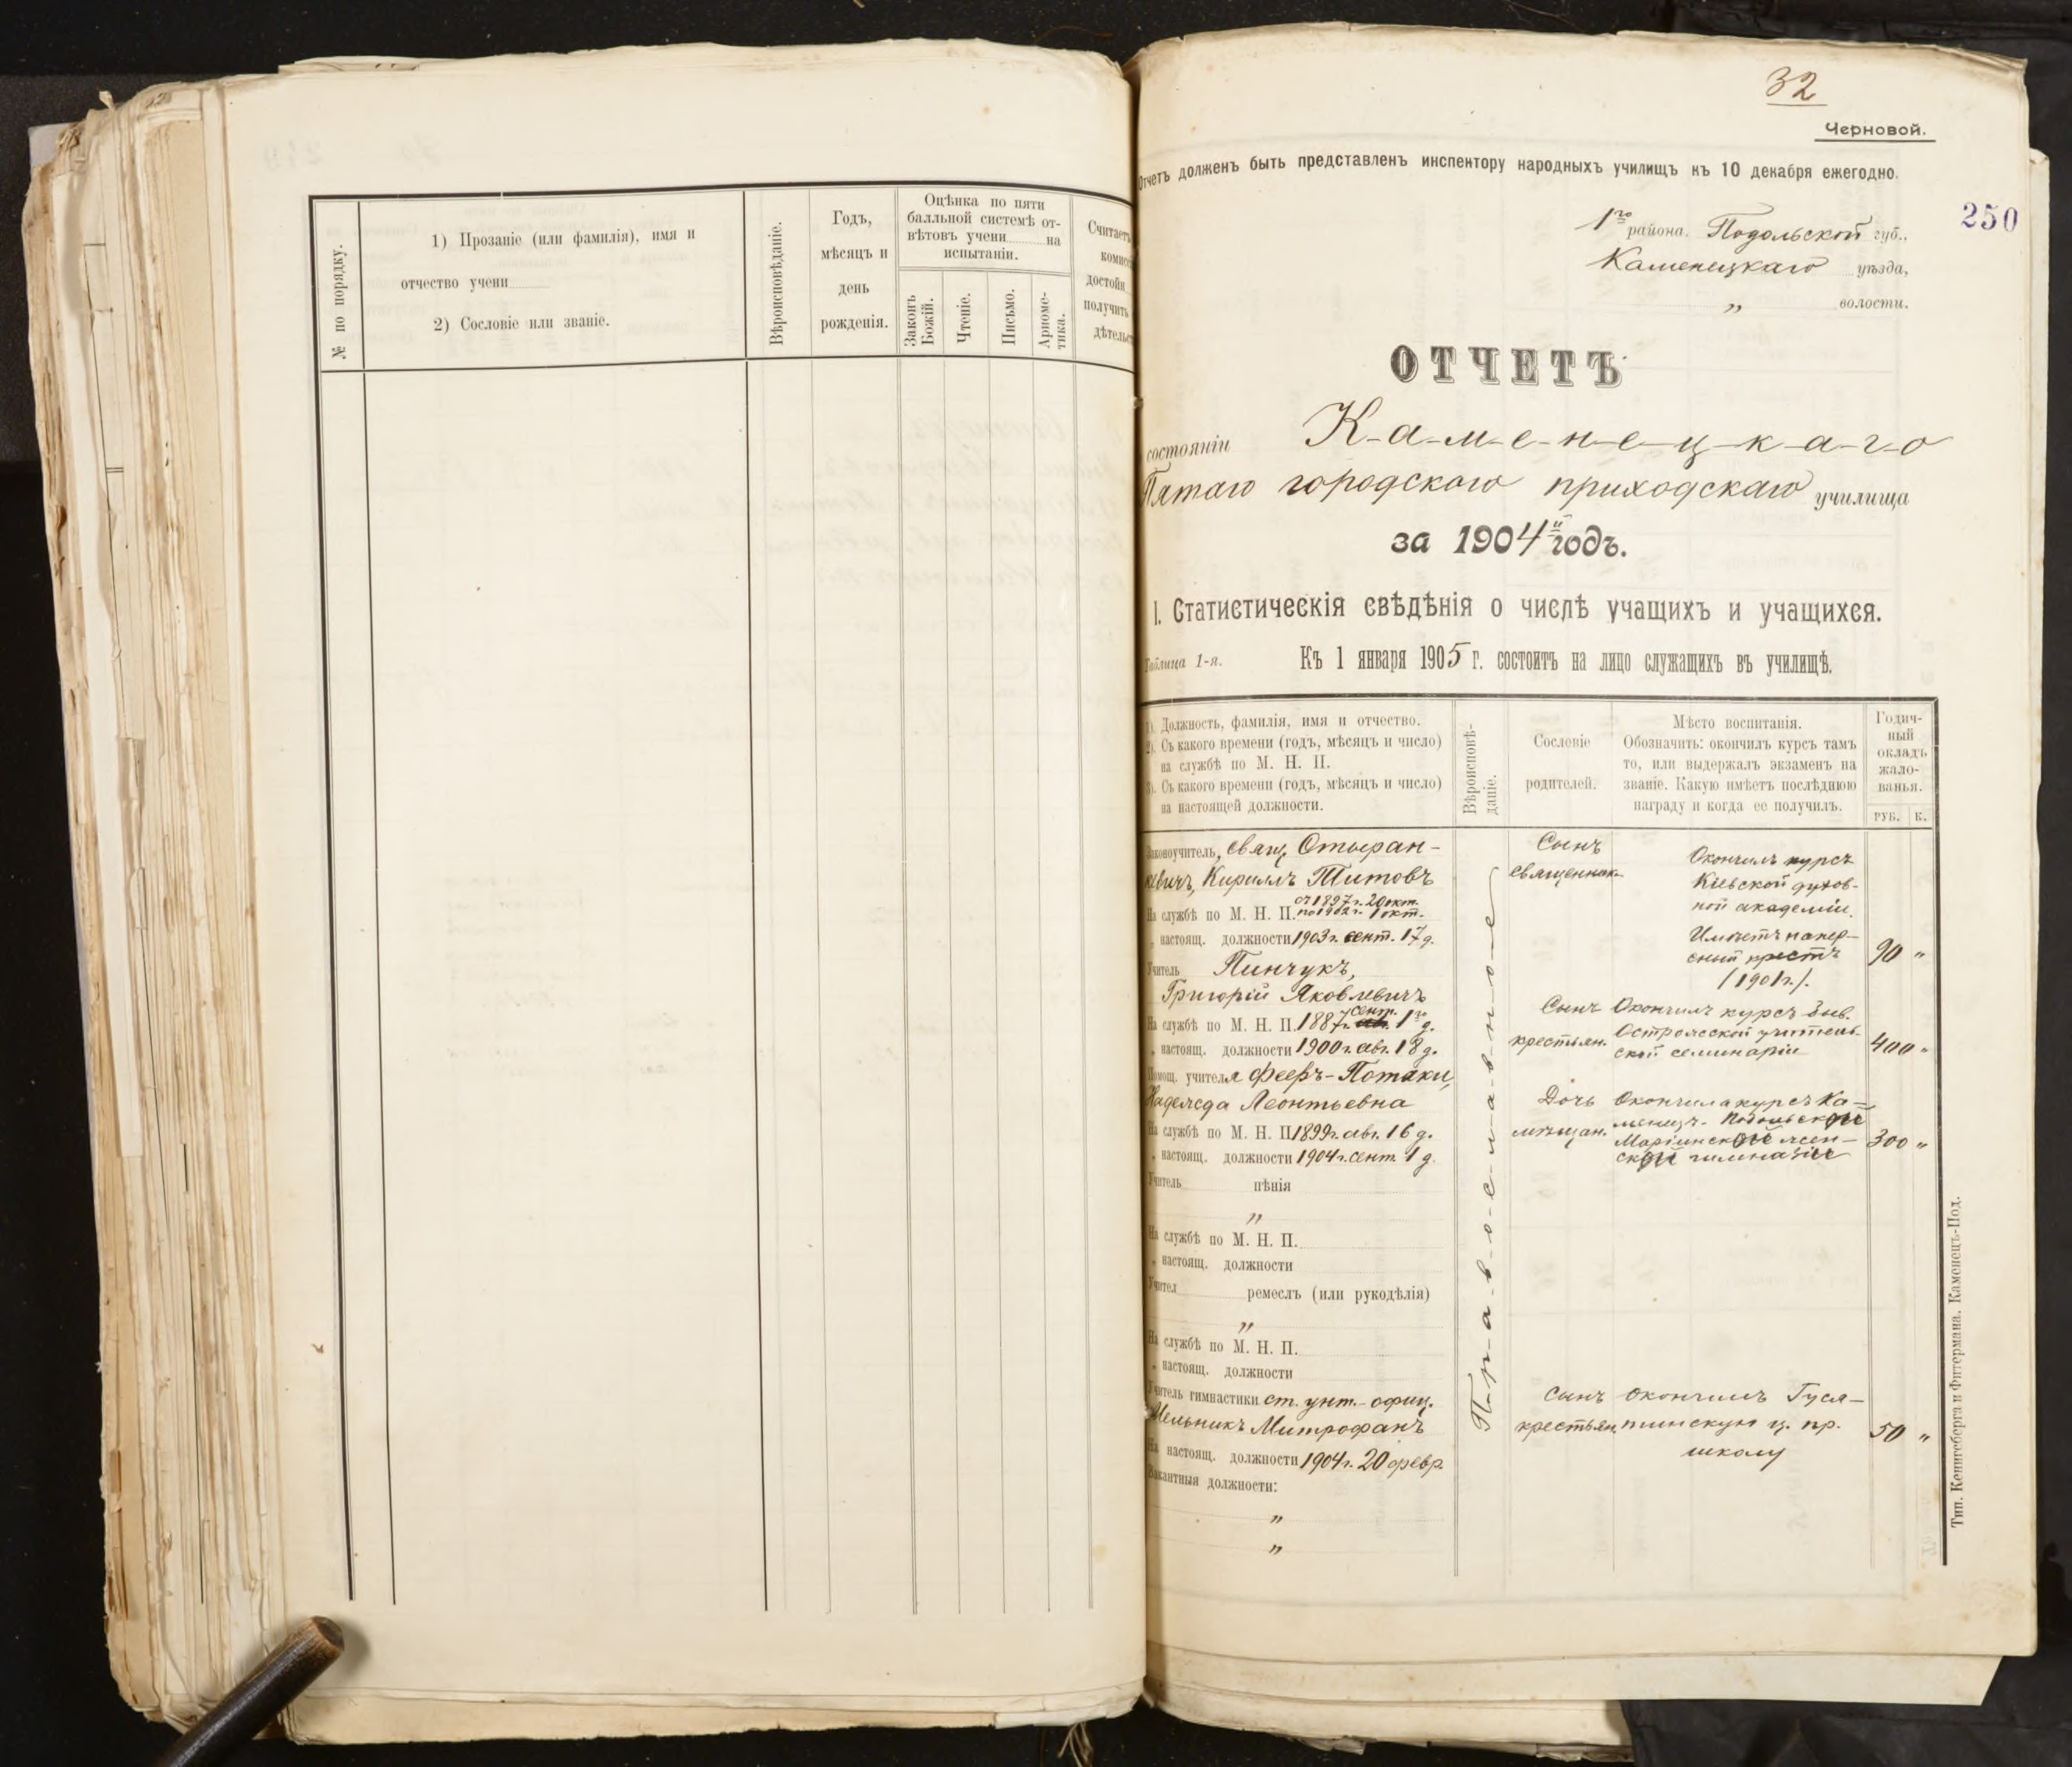 № по порядку.
1) Прозваніе (или фамилія), имя и
отчество учени
2) Сословіе или званіе.
Вѣроисповѣданіе.
Годъ,
мѣсяцъ и
день
рожденія.
Оцѣнка по пяти
балльной системѣ от-
вѣтовъ учени на
испытаніи.
Законъ
Божій.
Чтеніе.
Письмо.
Ариѳме-
тика.
Считаетъ
комисс
достойн
получить
дѣтельс
32
Черновой.
Отчетъ долженъ быть представленъ инспектору народныхъ училищъ къ 10 декабря ежегодно.
250
1го района. Подольской губ.,
Каменецкаго уѣзда,
„ волости.
ОТЧЕТЪ
состояніи К-а-м-е-н-е-ц-к-а-г-о
Пятаго городскаго приходскаго училища
за 1904й годъ.
I. Статистическія свѣдѣнія о числѣ учащихъ и учащихся.
Таблица 1-я. Къ 1 января 1905 г. состоитъ на лицо служащихъ въ училищѣ.
1). Должность, фамилія, имя и отчество.
2). Съ какого времени (годъ, мѣсяцъ и число)
на службѣ по М. Н. П.
3). Съ какого времени (годъ, мѣсяцъ и число)
на настоящей должности.
Вѣроисповѣ-
даніе.
Сословіе
родителей.
Мѣсто воспитанія.
Обозначить: окончилъ курсъ тамъ
то, или выдержалъ экзаменъ на
званіе. Какую имѣетъ послѣднюю
награду и когда ее получилъ.
Годич-
ный
окладъ
жало-
ванья.
РУБ. К.
Законоучитель, свящ. Стыран-
кевичъ, Кириллъ Титовъ
На службѣ по М. Н. П. съ 1897 г. 20 окт.
по 1902 г. 1 окт.
„ настоящ. должности 1903 г. сент. 17 д.
Сынъ
священник
Окончилъ курсъ
Кіевской духов-
ной академіи.
Имѣетъ напер-
сный крестъ
/1901 г./.
90 „
Учитель Пинчукъ,
Григорій Яковлевичъ
На службѣ по М. Н. П. 1887 г. сент. 1го д.
„ настоящ. должности 1900 г. авг. 18 д.
Сынъ
крестьян.
Окончилъ курсъ быв.
Острожской учитель-
ской семинаріи
400 „
Помощ. учителя Фееръ-Потаки,
Надежда Леонтьевна
На службѣ по М. Н. П. 1899 г. авг. 16 д.
„ настоящ. должности 1904 г. сент. 1 д.
Дочь
мѣщан.
Окончила курсъ Ка-
менецъ-Подольской
Маріинской жен-
ской гимназіи
300 „
Учитель пѣнія
„
На службѣ по М. Н. П.
„ настоящ. должности
Учител ремеслъ (или рукодѣлія)
„
На службѣ по М. Н. П.
„ настоящ. должности
Учитель гимнастики ст. унт.-офиц.
Мельникъ Митрофанъ
На настоящ. должности 1904 г. 20 февр.
Сынъ
крестьян.
окончилъ Гуся-
тинскую ц. пр.
школу
50 „
Вакантныя должности:
„
„
П-р-а-в-о-с-л-а-в-н-о-е
Тип. Кенигсберга и Фитермана. Каменецъ-Под.